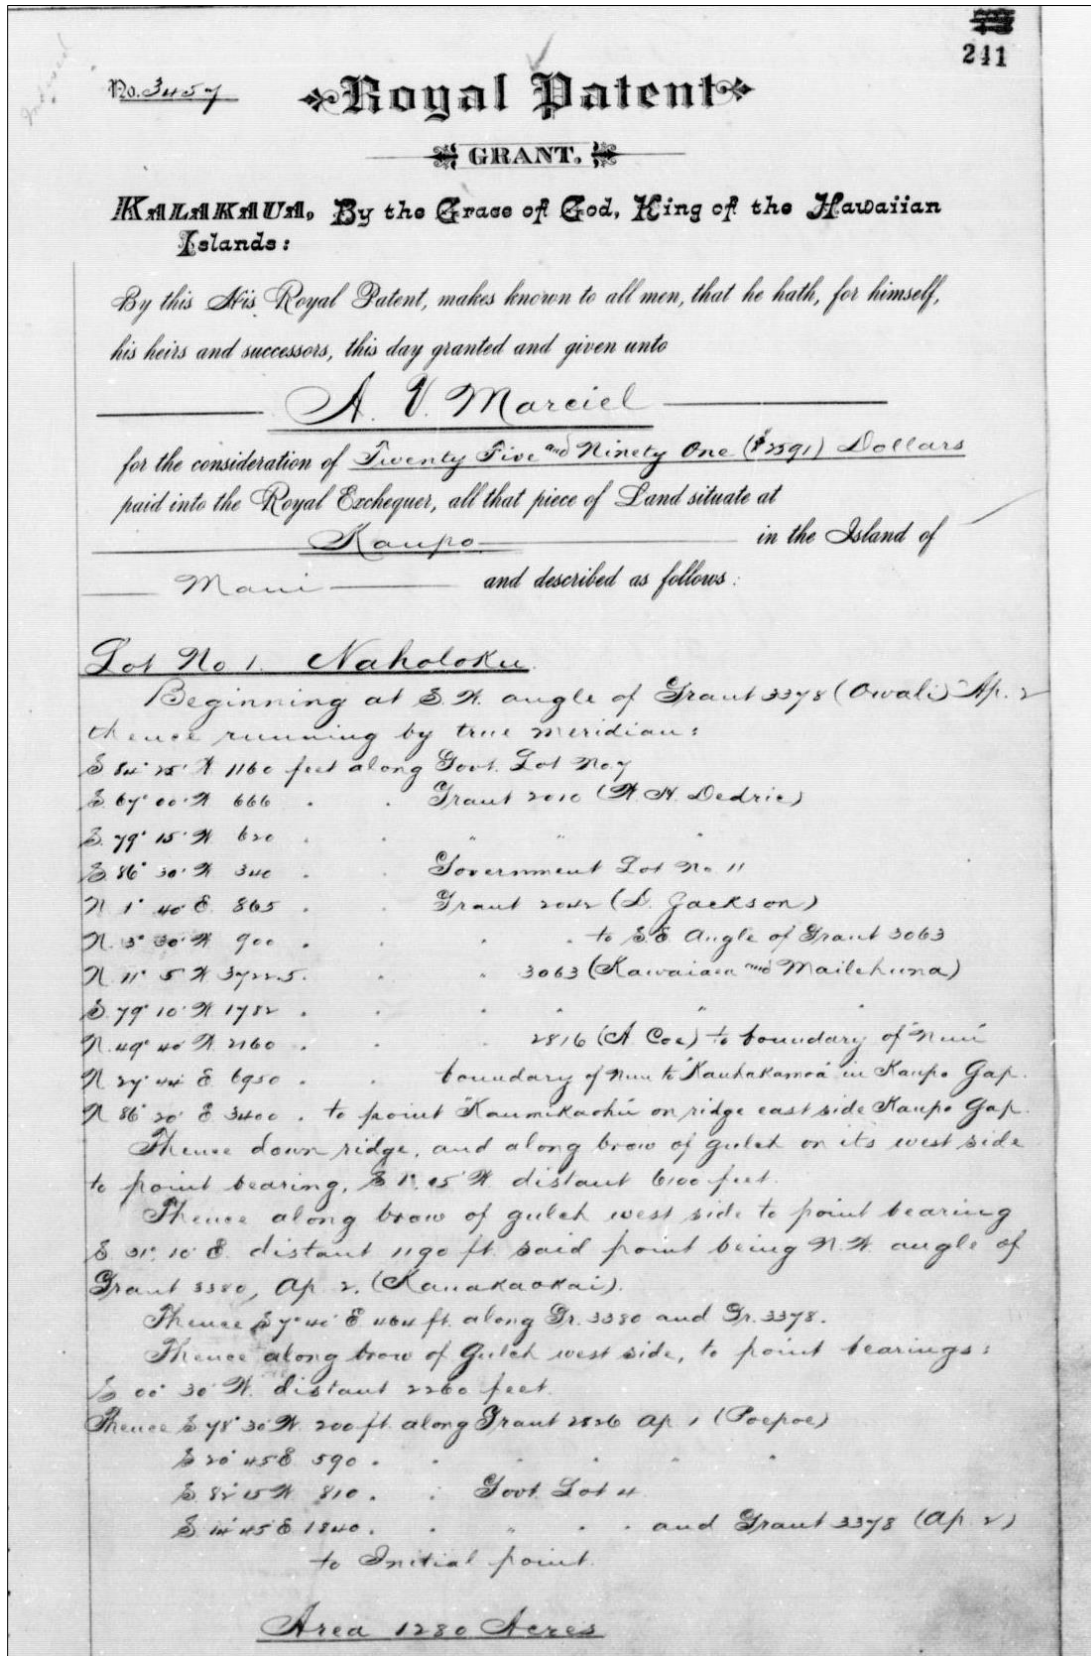 241
No. 3457
Royal Patent
GRANT.
KALAKAUA, By the Grace of God, King of the Hawaiian
Islands:
By this His Royal Patent, makes known to all men, that he hath, for himself,
his heirs and successors, this day granted and given unto
A. V. Marciel
for the consideration of Twenty Five and Ninety One ($2591) Dollars
paid into the Royal Exchequer, all that piece of Land situate at
Kaupo in the Island of
Maui and described as follows:
Lot No 1. Naholoku.
Beginning at S. W. angle of Grant 3378 (Owali) Ap. 2
thence running by true meridian:
S 84° 25' W 1160 feet along Govt. Lot No. 7
S. 67° 00' W 666 . . Grant 2010 (W. H. Dedric)
S. 79° 15' W. 620 . . " " "
S. 86° 30' W 340 . . Government Lot No. 11
N 1° 40' E. 865 . . Grant 2042 (D. Jackson)
N. 3° 30' W 900 . . . . to S.E Angle of Grant 3063
N. 11° 5' W 3722.5. . " 3063 (Kawaiaea and Mailehuna)
S. 79° 10' W 1782 . . . " " .
N. 49° 40' W 2160 . . . 2816 (A. Coe) to boundary of "Nuu"
N 27° 44' E 6950 . . boundary of Nuu to "Kauhakamoa" in Kaupo Gap.
N 86° 20' E 3400 . to point "Kaumikaohu" on ridge east side Kaupo Gap.
Thence down ridge, and along brow of gulch on its west side
to point bearing, S 1° 15' W distant 6100 feet.
Thence along brow of gulch west side to point bearing
S 31° 10' E. distant 1190 ft. said point being N. W. angle of
Grant 3380, Ap 2. (Kanakaokai).
Thence S 7° 40' E 464 ft. along Gr. 3380 and Gr. 3378.
Thence along brow of Gulch west side, to point bearings:
S 00° 30' W. distant 2260 feet.
Thence S 78° 30' W. 200 ft. along Grant 2826 Ap 1 (Poepoe)
S 20° 45' E 590 . . . . " .
S. 82° 15' W 810 . . Govt. Lot 4
S 14° 45' E 1840 . . " . . and Grant 3378 (Ap. 2)
to Initial point.
Area 1280 Acres